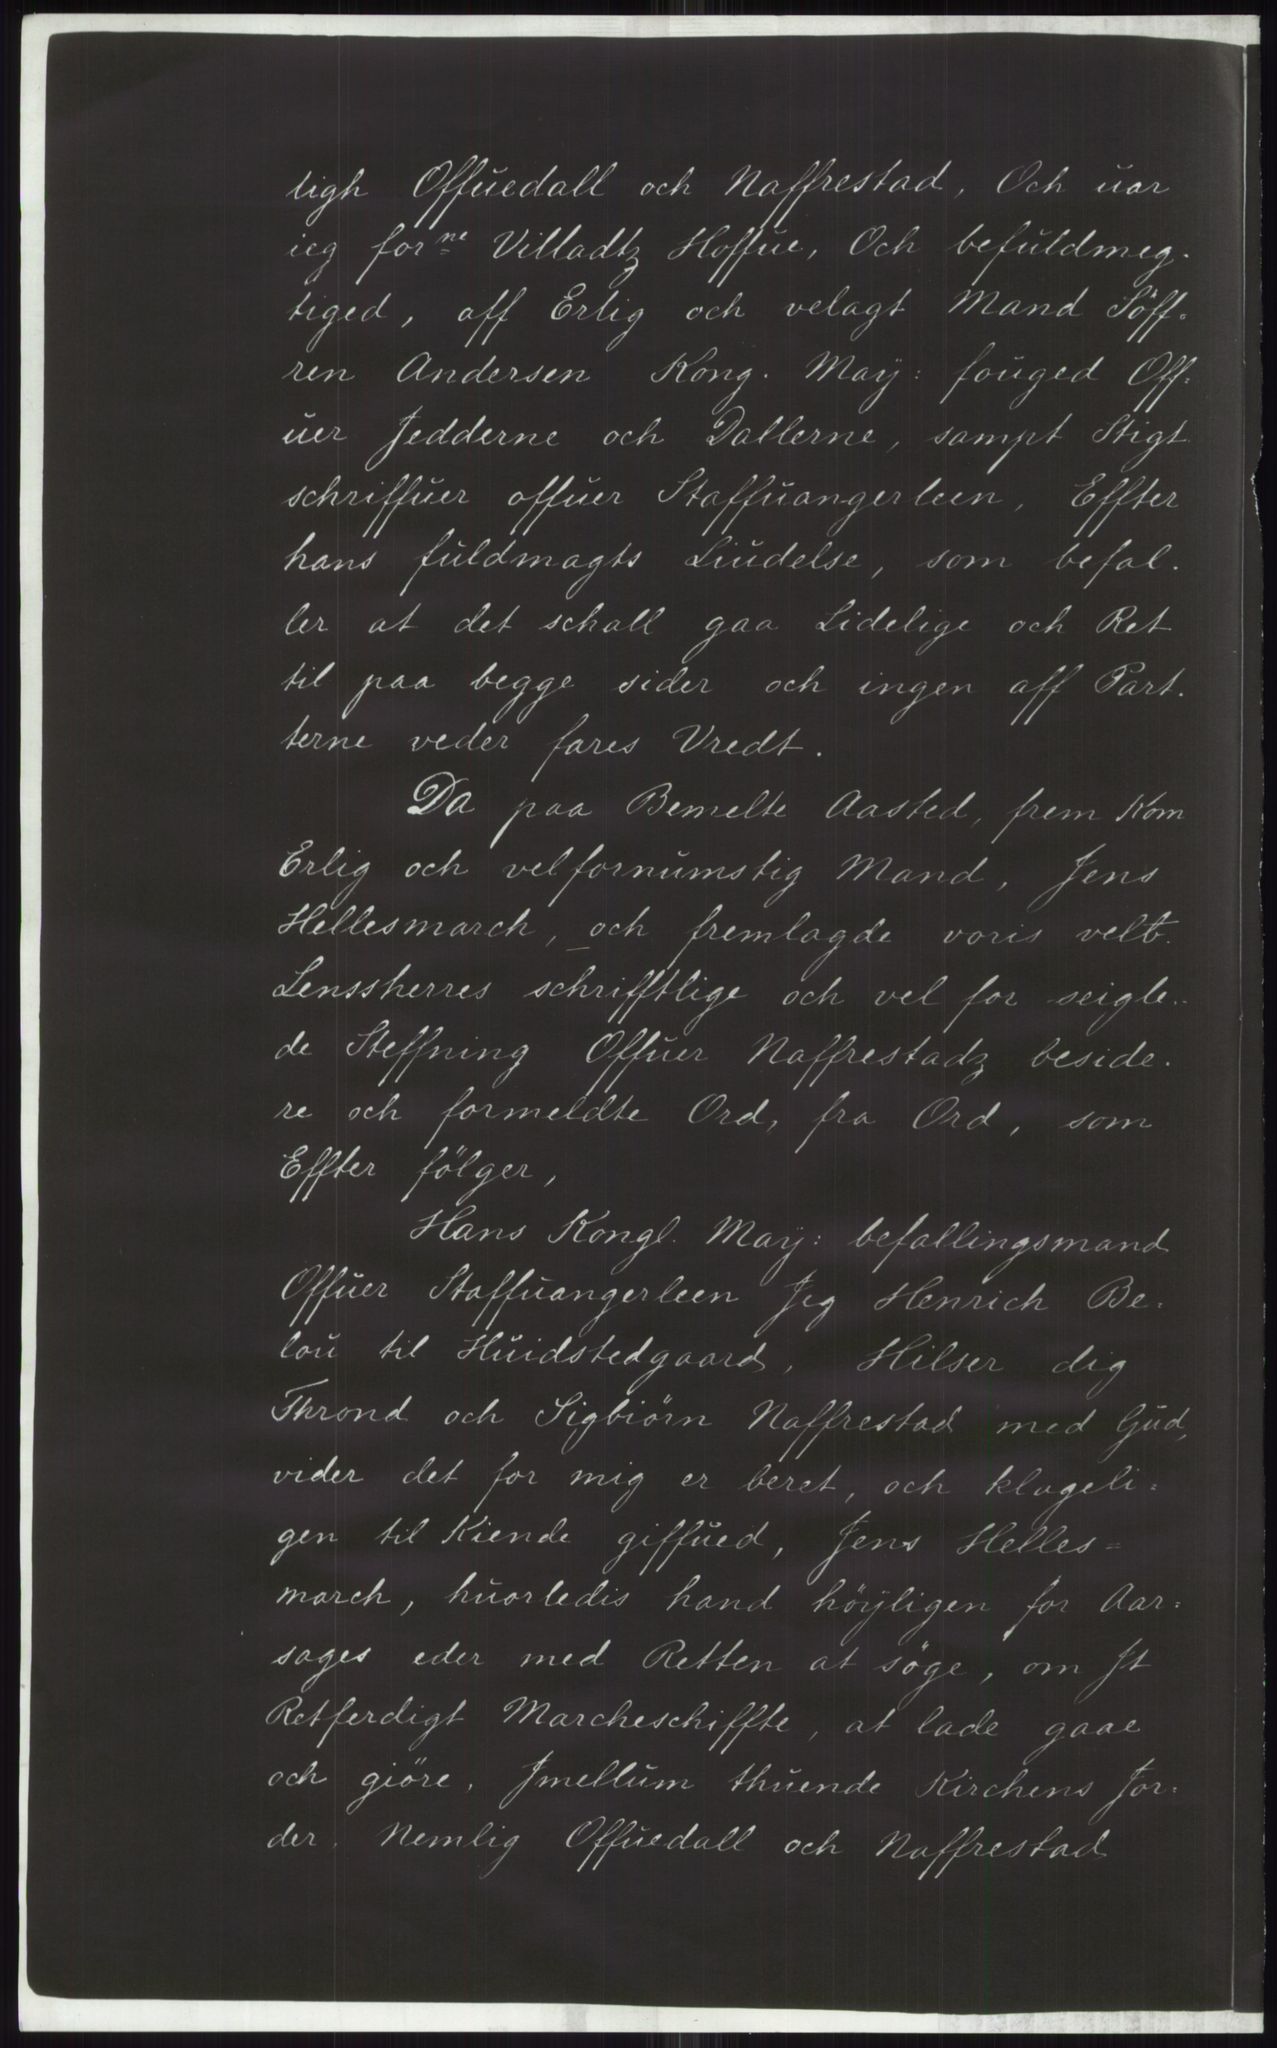 ligh Offuedall och Naffrestad, Och uar
ieg for<u>ne</u> Villadtz Hoffue, Och befuldmeg-
tiged, aff Erlig och velagt Mand Söff-
ren Andersen Kong. May: fouged Off-
uer Jedderne och Dallerne, sampt Stigt
schriffuer offuer Staffuangerleen, Effter
hans fuldmagts Liudelse, som befal-
ler at det schall gaa Lidelige och Ret
til paa begge sider och ingen aff Part-
terne veder fares Vredt.
Da paa Bemelte Aasted, frem Kom
Erlig och velfornumstig Mand, Jens
Hellesmarch, och fremlagde voris velb.
Lenssherres schrifftlige och vel for seigle-
de Steffning Offuer Naffrestadz beside-
re och formeldte Ord, fra Ord, som
Effter fölger,
Hans Kongl. May: befallingsmand
Offuer Staffuangerleen Jeg Henrich Be-
lou til Huidstedgaard, Hilser dig
Thrond och Sigbiörn Naffrestad med Gud,
vider det for mig er beret, och klageli-
gen til Kiende giffued, Jens Helles-
march, huorledis hand höyligen for Aar-
sages eder med Retten at söge, om Jt
Retferdigt Marcheschiffte, at lade gaae
och giöre, Jmellum thuende Kirchens Jor-
der, Nemlig Offuedall och Naffrestad